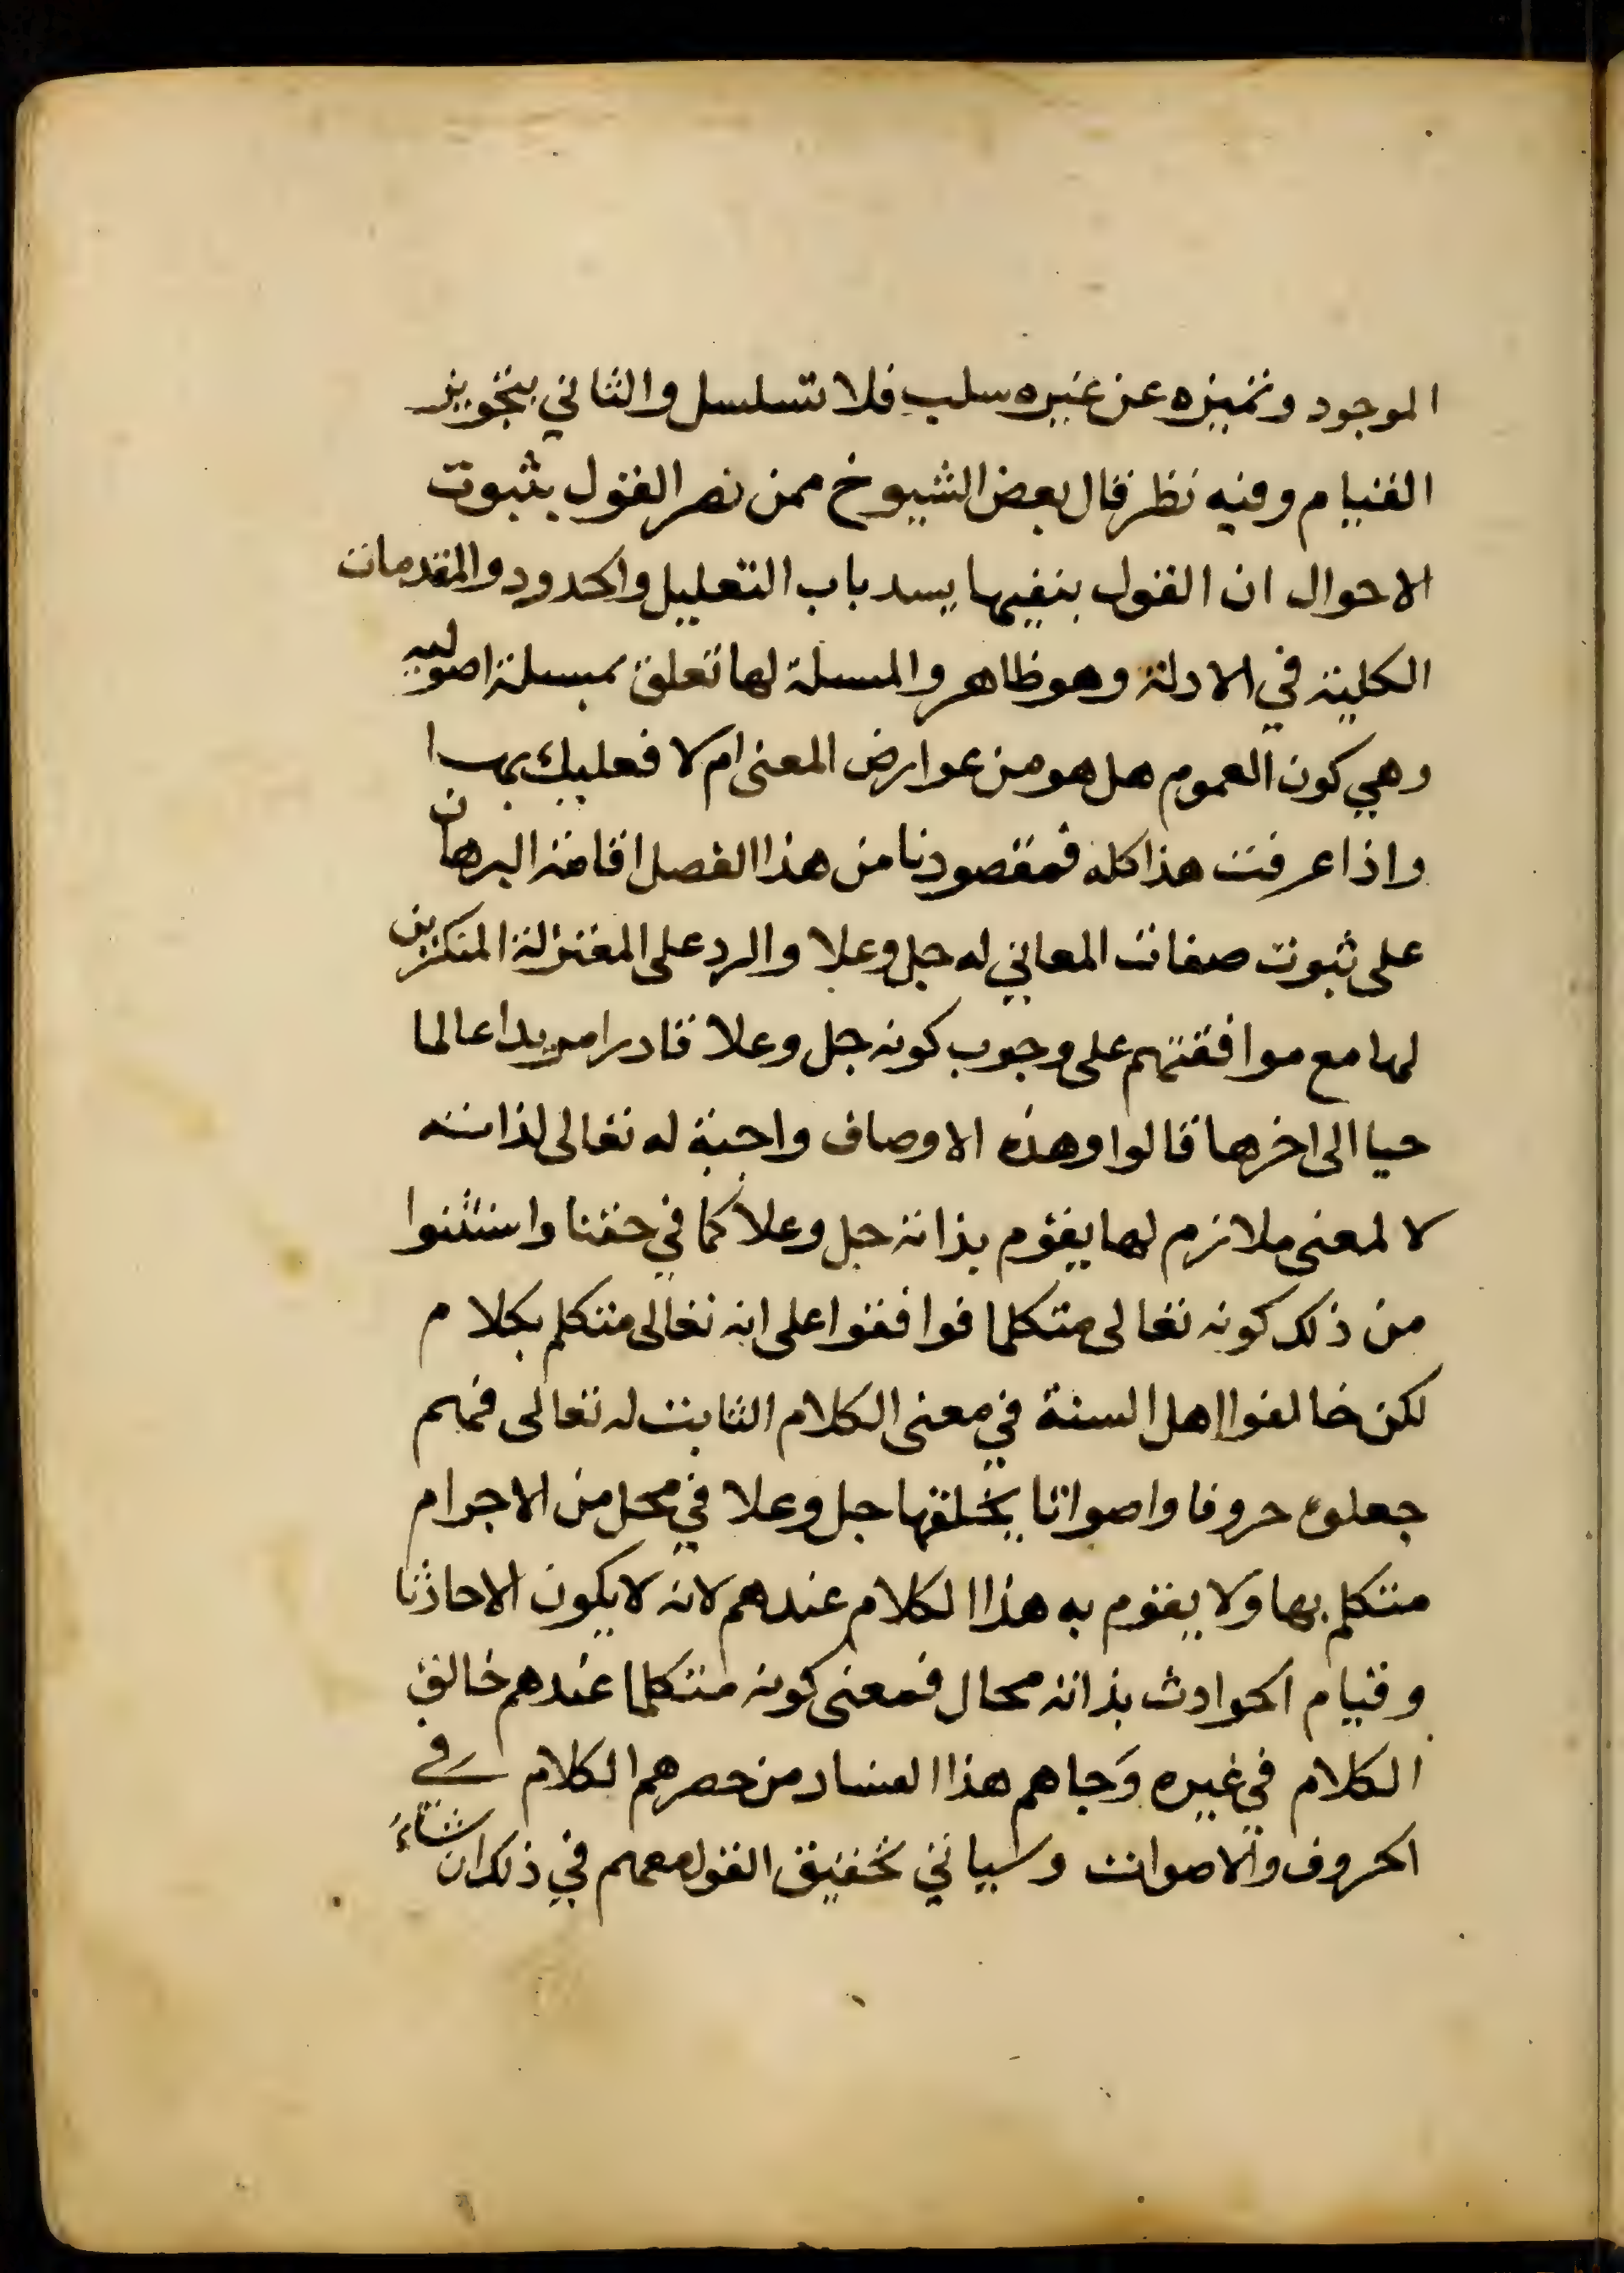 الموجود وتميزه عن غيره سلب فلا تسلسل والثاني بتجويز
القيام وفيه نظر قال بعض الشيوخ ممن نصر القول بثبوت
الاحوال ان القول بنفيها يسد باب التعليل والحدود والمقدمات
الكلية في الادلة وهو ظاهر والمسلة لها تعلق بمسلة اصوليه
وهي كون العموم هل هو من عوارض المعنى ام لا فعليك بها
واذا عرفت هذا كله فمقصودنا من هذا الفصل اقامة البرهان
على ثبوت صفات المعاني له جل وعلا والرد على المعتزلة المنكرين
لها مع موافقتهم على وجوب كونه جل وعلا قادرا مريدا عالما
حيا الى اخرها قالوا وهذه الاوصاف واجبة له تعالى لذاته
لا لمعنى ملازم لها يقوم بذاته جل وعلا كما في حقنا واستثنوا
من ذلك كونه تعالى متكلما فوافقوا على انه تعالى متكلم بكلام
لكن خالفوا اهل السنة في معنى الكلام الثابت له تعالى فهم
جعلوه حروفا واصواتا يخلقها جل وعلا في محل من الاجرام
متكلم بها ولا يقوم به هذا الكلام عندهم لانه لا يكون الاحادثا
وقيام الحوادث بذاته محال فمعنى كونه متكلما عندهم خالق
الكلام في غيره وَجاهم هذا الفساد من حصرهم الكلام في
الحروف والاصوات وسياتي تحقيق القول معهم في ذلك ان شاءَ